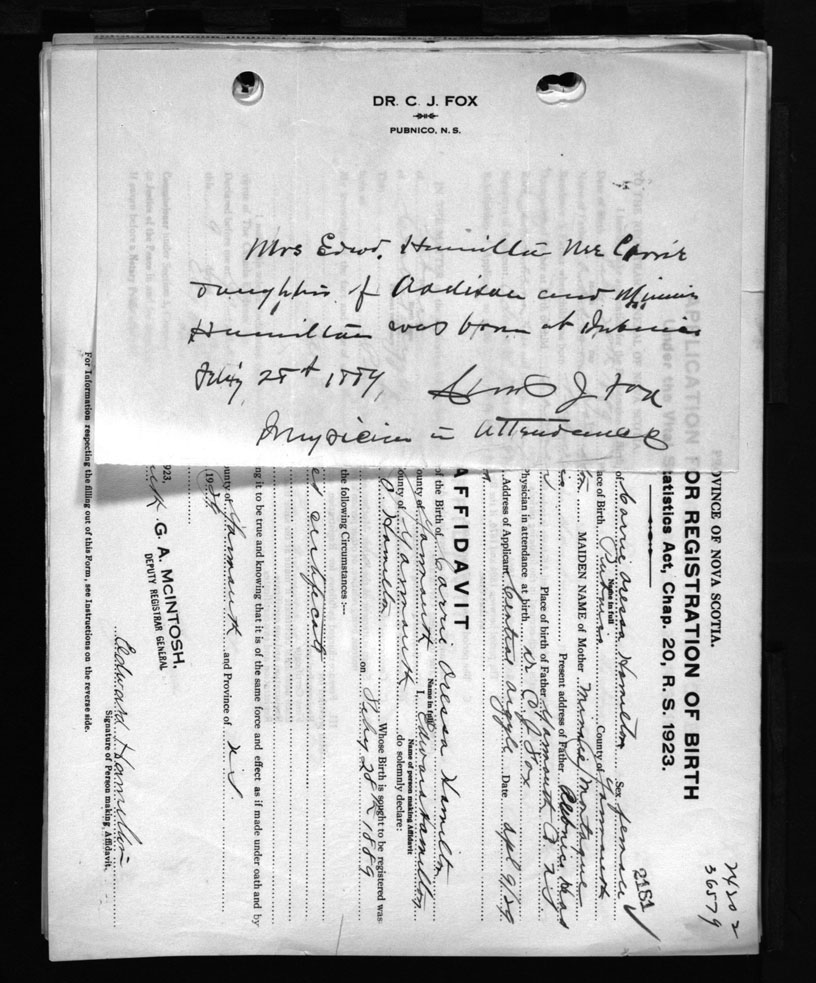 DR. C. J. FOX
PUBNICO, N. S.
Mrs Edwd. Hamilton nee Carrie
Daughter of Addison and Minnie
Hamilton was born at Pubnico
Feby 28th 1889
J Fox
Physician in Attendance
PROVINCE OF NOVA SCOTIA.
OR REGISTRATION OF BIRTH
tatistics Act, Chap. 20, R. S. 1923.
24802
36579
2151
of Carrie Hamilton Sex female
Name in full
ace of Birth Pubnico County of Yarmouth
MAIDEN NAME of Mother Minnie Montague
Present address of Father Pubnico Head
Place of birth of Father Yarmouth Co. N S
Physician in attendance at birth Dr C J Fox
Address of Applicant Central Argyle Date Apl 9/29
AFFIDAVIT
of the Birth of Carrie Hamilton
Name in full
ounty of Yarmouth I, Edward Hamilton
Name of person making Affidavit
ounty of Yarmouth do solemnly declare:
Hamilton Whose Birth is sought to be registered was
on Feby 28th 1889
the following Circumstances :—
certificate
ng it to be true and knowing that it is of the same force and effect as if made under oath and by
ounty of Yarmouth and Province of N S
19
1923,
G. A. McINTOSH.
DEPUTY REGISTRAR GENERAL
Edward Hamilton
Signature of Person making Affidavit.
For Information respecting the filling out of this Form, see Instructions on the reverse side.